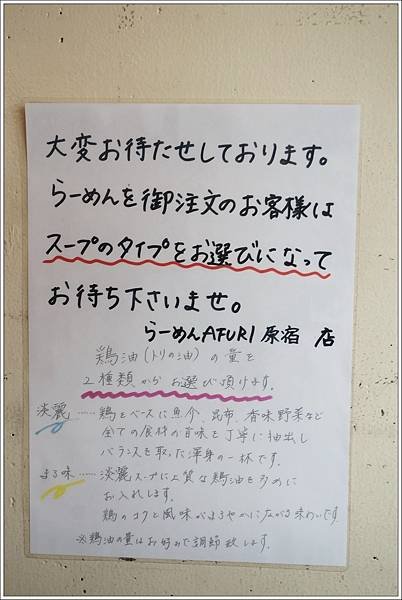 大変お待たせしております。
らーめんを御注文のお客様は
スープのタイプをお選びになって
お待ち下さいませ。
らーめんAFURI原宿 店
鶏油(トリの油)の量を
2種類からお選び頂けます。
淡麗……鶏をベースに魚介、昆布、香味野菜など
全ての食材の旨味を丁寧に抽出し
バランスを取った渾身の一杯です。
まろ味……淡麗スープに上質な鶏油を多めに
お入れします。
鶏のコクと風味がまろやかに広がる味わいです
※鶏油の量はお好みで調節致します。